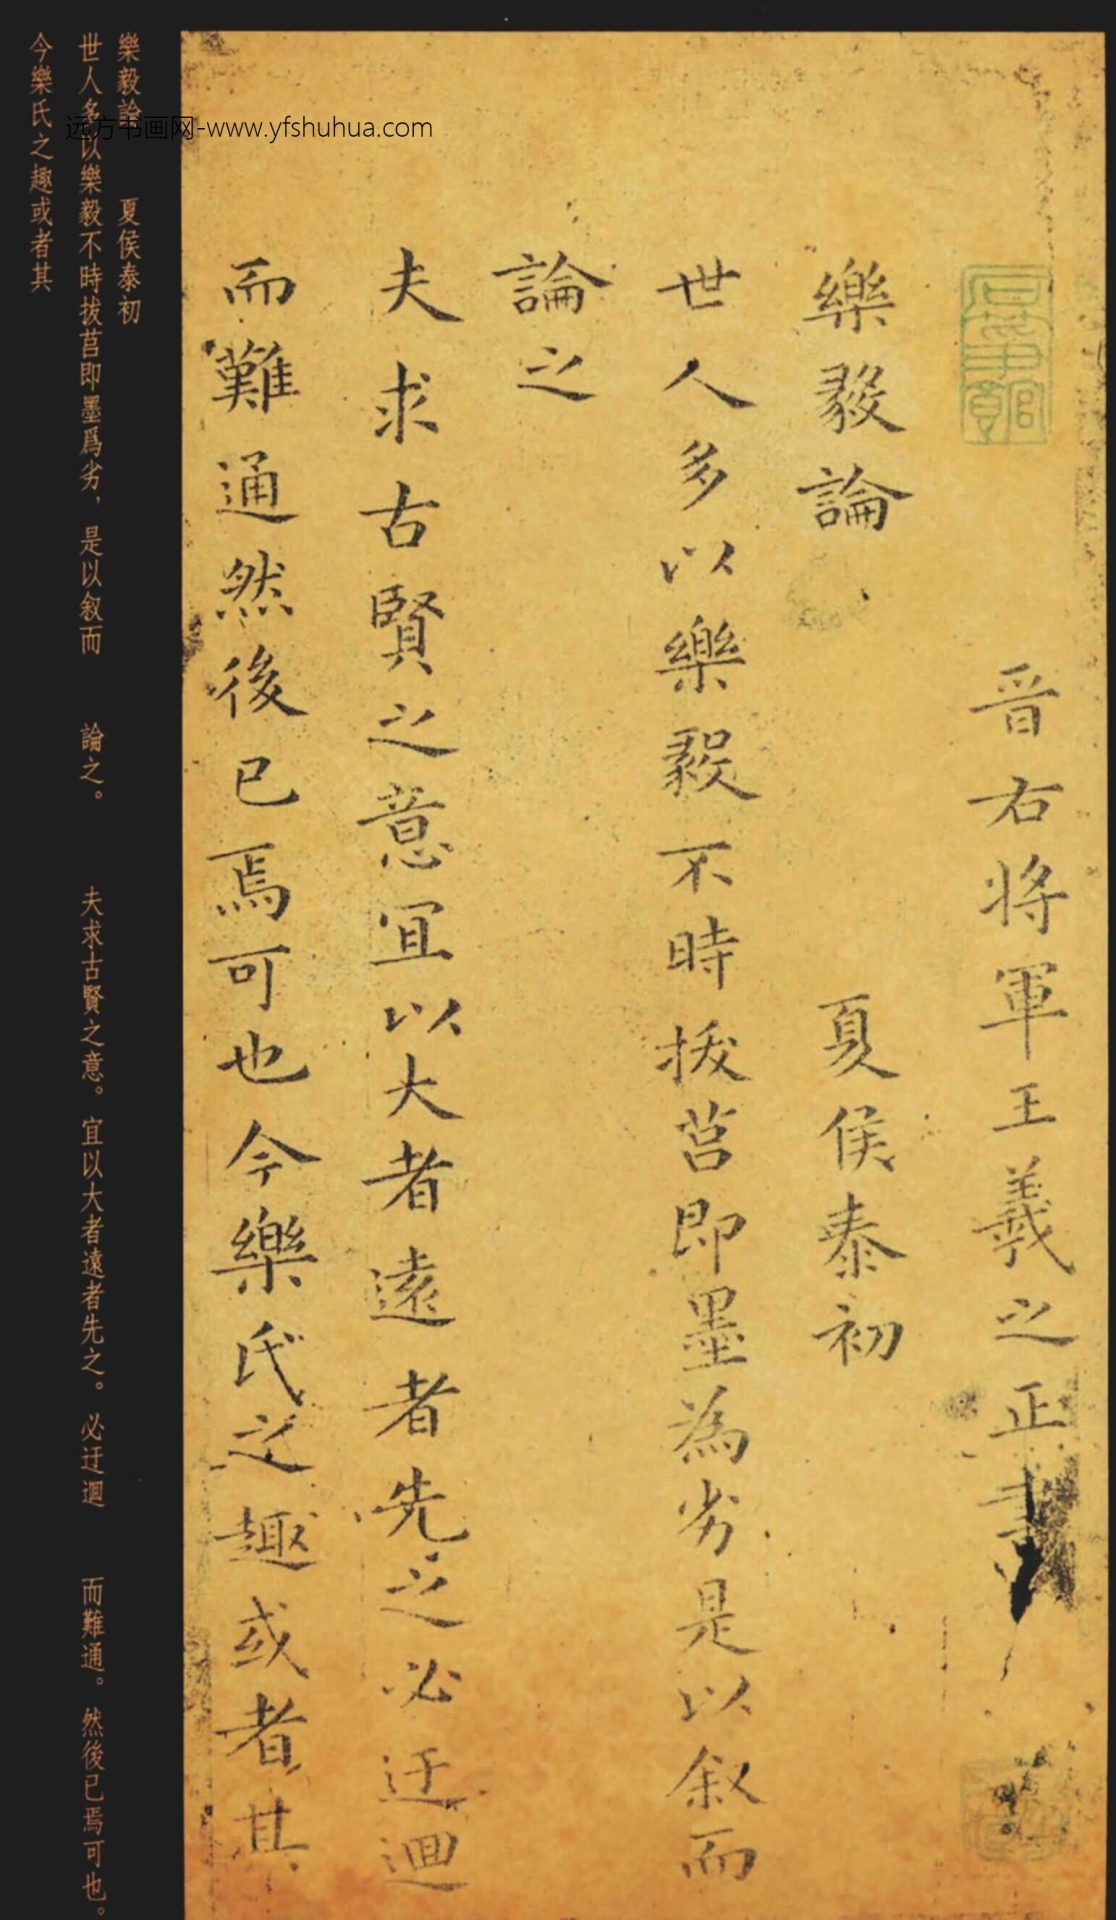 晉右將軍王羲之正書
樂毅論 夏侯泰初
世人多以樂毅不時拔莒即墨為劣是以叙而
論之
夫求古賢之意宜以大者遠者先之必迂迴
而難通然後已焉可也今樂氏之趣或者其
樂毅論 夏侯泰初
世人多以樂毅不時拔莒即墨爲劣，是以叙而 論之。 夫求古賢之意。宜以大者遠者先之。必迂迴 而難通。然後已焉可也。
今樂氏之趣或者其
远方书画网-www.yfshuhua.com